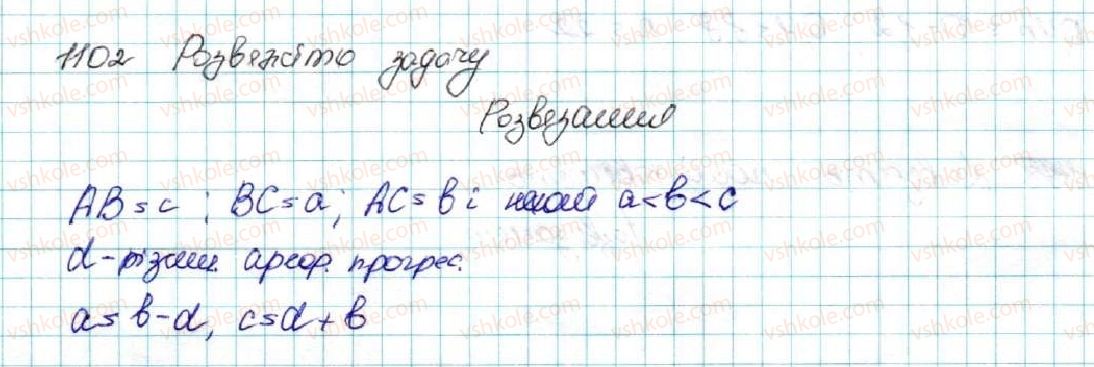 1102 Розвяжіть задачу
Розвезання
AB = c ; BC = a ; AC = b і нехай a < b < c
d - різниц. ариф. прогрес.
a = b - d, c = d + b